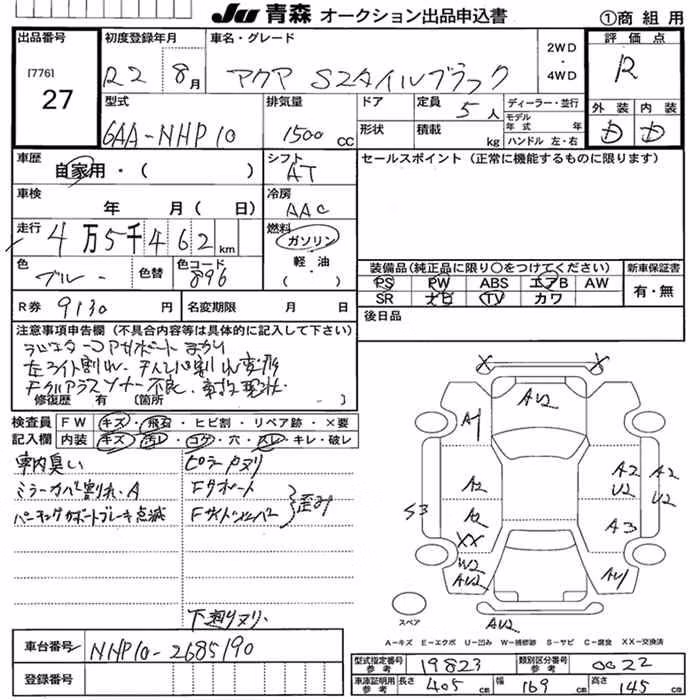 JU 青森 オークション出品申込書 ①商組用
出品番号 [776] 27
初度登録年月 R2 8月
車名・グレード アクア Sスタイルブラック
2WD・4WD
評価点 R
外装 D 内装 D
型式 6AA-NHP10
排気量 1500 CC
ドア 定員 5人
形状 積載 kg
ディーラー・並行
モデル年式 年
ハンドル 左・右
車歴 自家用・( )
シフト AT
セールスポイント (正常に機能するものに限ります)
車検 年 月( 日)
冷房 AAC
走行 4万5千462km
燃料 ガソリン・軽油 ( )
色 ブルー 色替 色コード 896
装備品(純正品に限り○をつけてください)
PS PW ABS エアB AW
SR ナビ TV カワ
新車保証書 有・無
R券 9130円 名変期限 月 日
後日品
注意事項申告欄 (不具合内容等は具体的に記入して下さい)
ラジエターコアサポート まがり
左ライト割れ、
Fクリアランスソナー不良、事故現状
修復歴 有 [箇所 ]
検査員記入欄
FW キズ・飛石・ヒビ割・リペア跡・×要
内装 キズ・汚れ・コゲ・穴・スレ・キレ・破レ
車内臭い ピラーヌリ
ミラーカバー割れ・A Fサポート
パーキングサポートブレーキ点滅 Fサイドメンバー
歪み
下廻りヌリ
X X
AU2
A1
A2 A2 A2
U2 U2
S3 A2 A3
XX
W2
AU2 AU1
AU2
スペア
A-キズ E-エクボ U-凹み W-補修跡 S-サビ C-腐食 XX-交換済
車台番号 NHP10-2685190
登録番号
型式指定番号 参考 19823 類別区分番号 参考 0022
車庫証明用 参考 長さ 405cm 幅 169cm 高さ 145cm